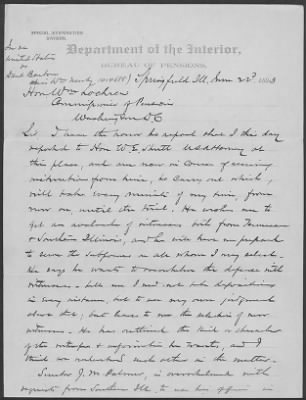 SPECIAL EXAMINATION
DIVISION.
Department of the Interior,
In re
United States
vs
BUREAU OF PENSIONS,
Springfield Ill. June 22d 1893
Hon Wm Lochren
Commissioner of Pensions
Washington D.C.
Sir, I have the honor to report that I this day
reported to Hon W. E. Shutt U S Attorney at
this place, and am now in course of receiving
instructions from him, to carry out which,
will take every minute of my time, from
now on, until the trial. He wishes me to
get an avalanche of witnesses both from Tennessee
& Southern Illinois, and he will have me prepared
to serve the subpoenas on all whom I may select.
He says he wants to overwhelm the defense with
witnesses - tells me I need not take depositions
in every instance, but to use my own judgment
about this; but leaves to me the selection of new
witnesses - He has outlined the kind & character
of the witnesses & information he wants, and I
think we understand each other in the matter.
Senator J. M. Palmer, is overwhelmed with
requests from Southern Ill. to use his offices in